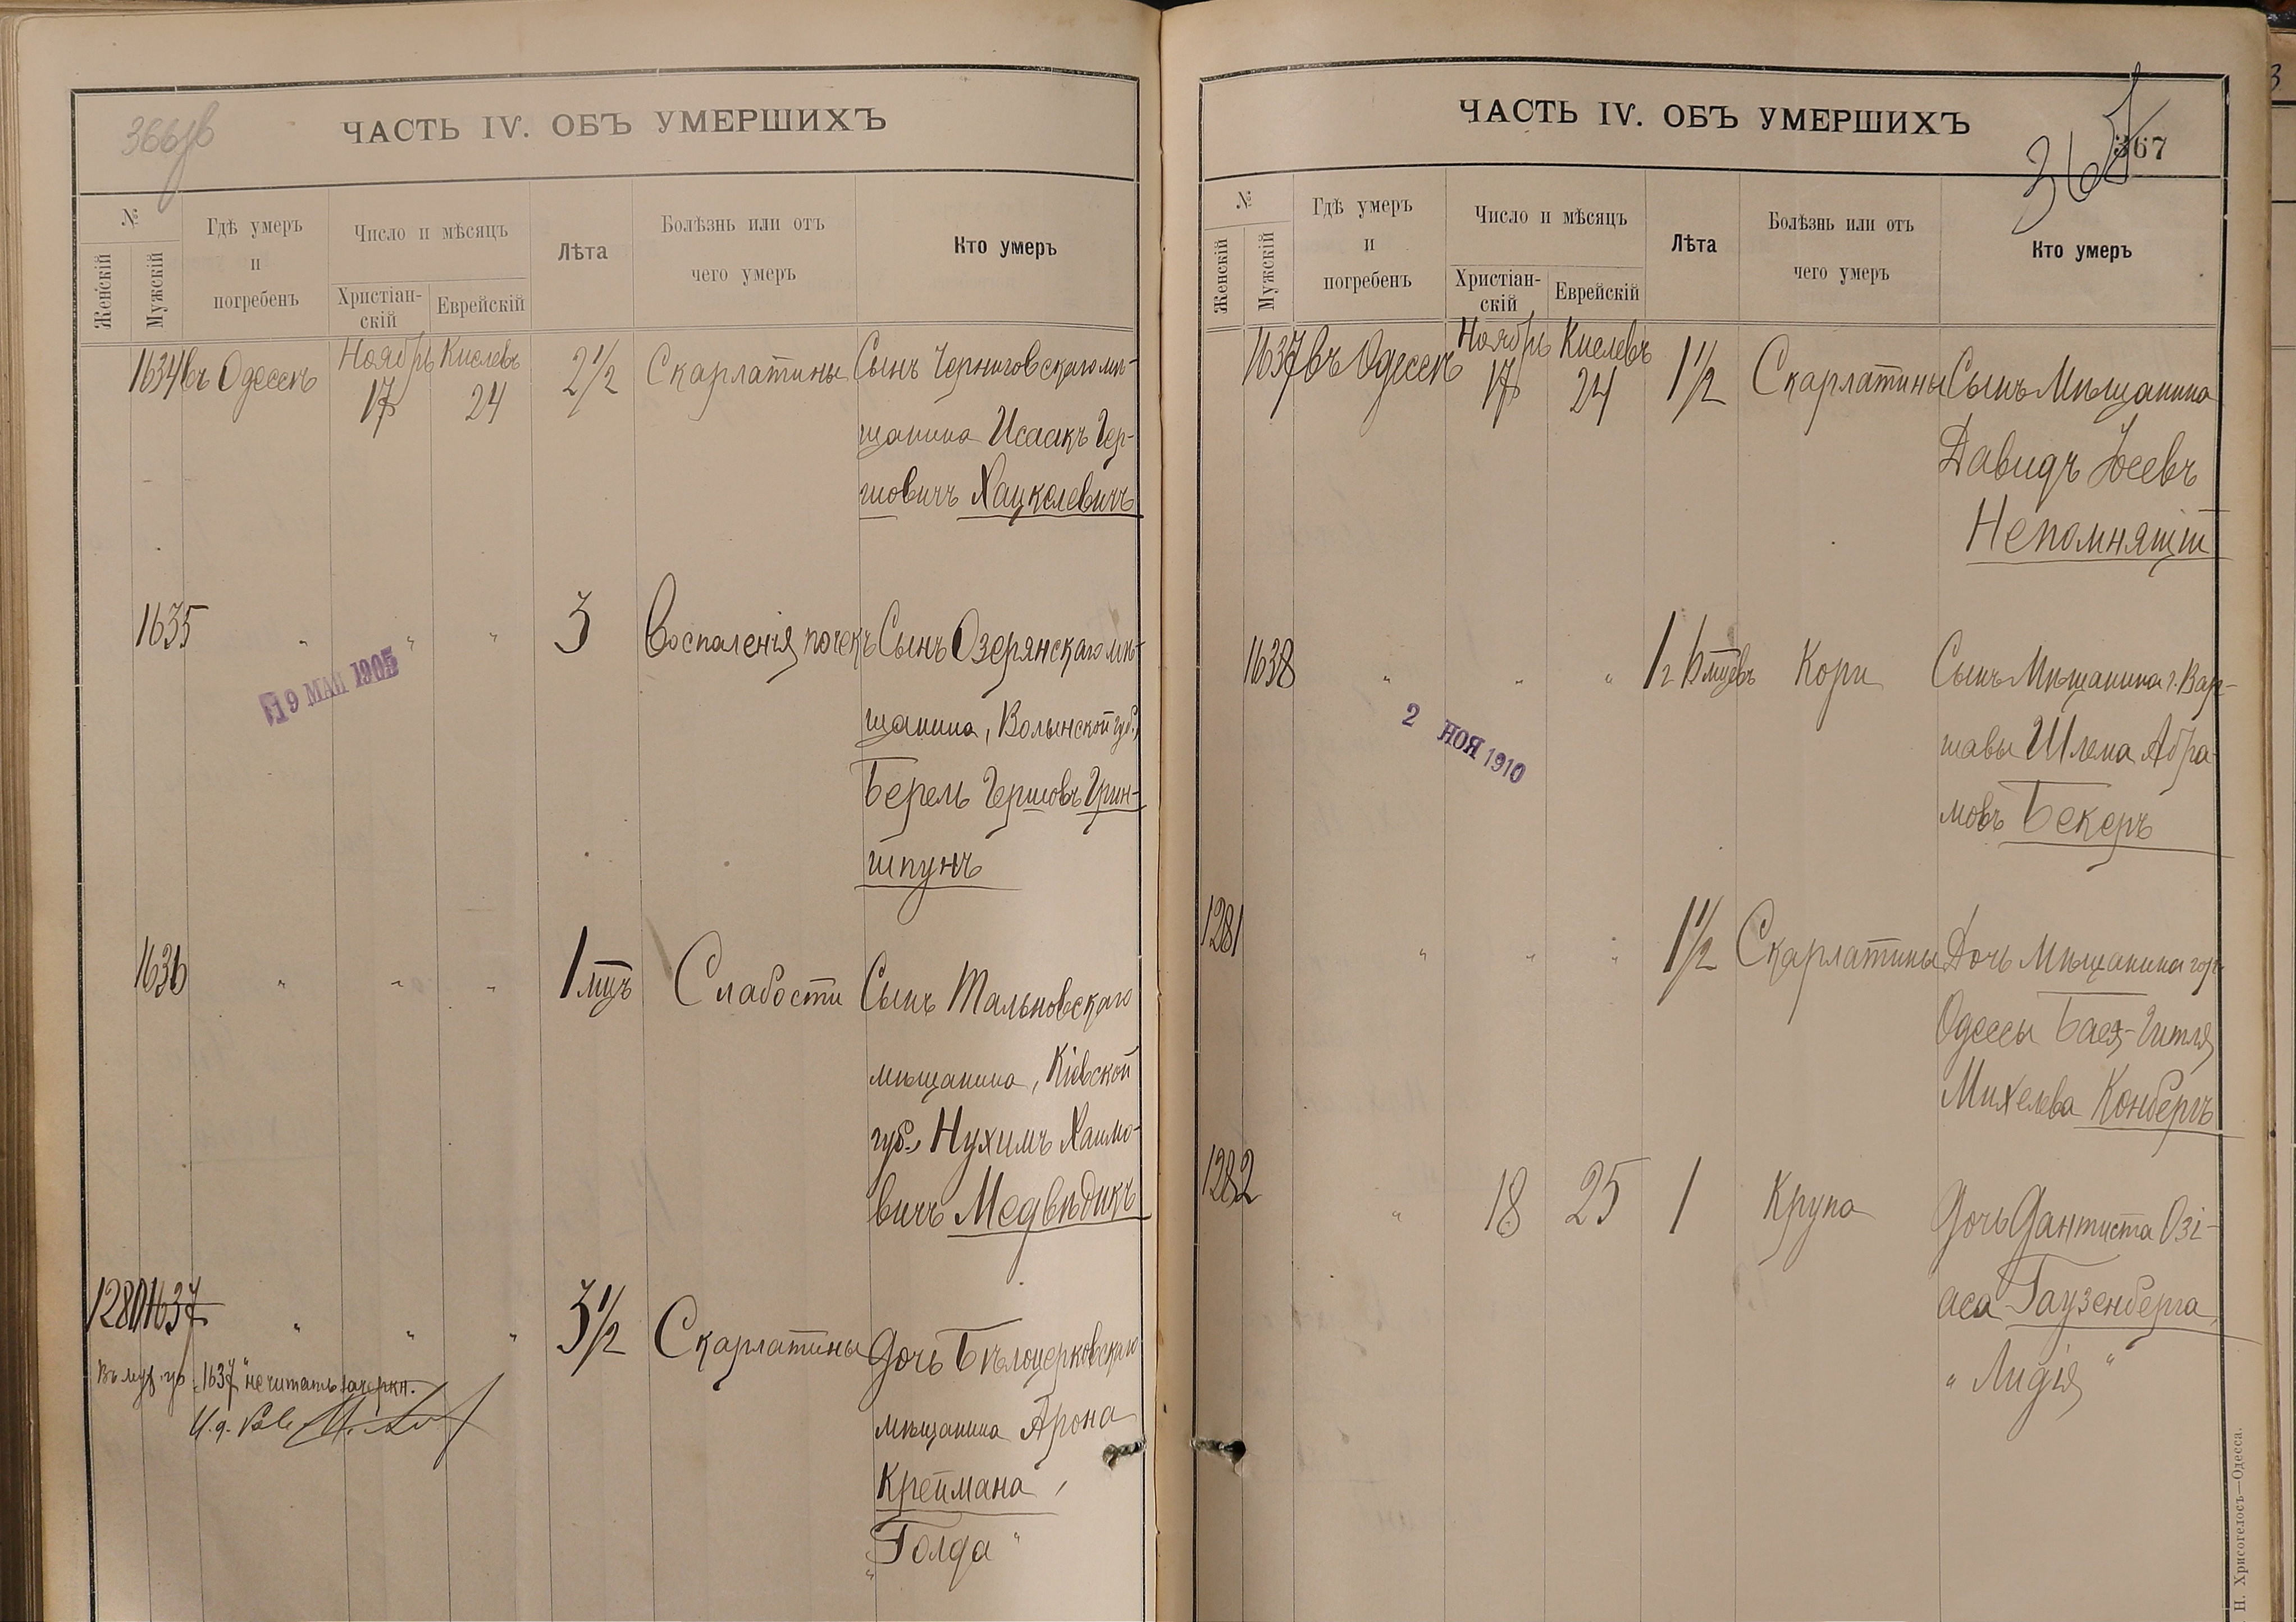 366 об
ЧАСТЬ IV. ОБЪ УМЕРШИХЪ
№
Женскій
Мужскій
Гдѣ умеръ
и
погребенъ
Число и мѣсяцъ
Христіан-
скій
Еврейскій
Лѣта
Болѣзнь или отъ
чего умеръ
Кто умеръ
1634 въ Одессѣ Ноябрь 17 Кислевъ 24 2 1/2 Скарлатины Сынъ Черниговскаго мѣ-
щанина Исаакъ Гер-
шовичъ Хацкелевичъ
1635 " " " 3 Воспаленія почекъ Сынъ Озерянскаго мѣ-
щанина, Волынской губ.,
Берель Гершовъ Грин-
шпунъ
19 МАЙ 1905
1636 " " " 1 мцъ Слабости Сынъ Тальновскаго
мѣщанина, Кіевской
губ., Нухимъ Хаимо-
вичъ Медвѣдикъ
1280 1637 " " " 3 1/2 Скарлатины Дочь Бѣлоцерковскаго
мѣщанина Арона
Креймана,
"Голда"
"1637" не читать зачеркн.
ЧАСТЬ IV. ОБЪ УМЕРШИХЪ
367
№
Женскій
Мужскій
Гдѣ умеръ
и
погребенъ
Число и мѣсяцъ
Христіан-
скій
Еврейскій
Лѣта
Болѣзнь или отъ
чего умеръ
Кто умеръ
1637 въ Одессѣ Ноябрь 17 Кислевъ 24 1 1/2 Скарлатины Сынъ Мѣщанина
Давидъ Іосевъ
Непомнящій
1638 " " " 1 г 6 мцевъ Кори Сынъ Мѣщанина г. Вар-
шавы Шлема Абра-
мовъ Бекеръ
2 НОЯ 1910
1281 " " " 1 1/2 Скарлатины Дочь Мѣщанина гор.
Одессы Бася-Гитля
Михелева Конбергъ
1282 " 18 25 1 Крупа Дочь Дантиста Озі-
аса Гаузенберга,
"Лидія"
Н. Хрисогелосъ—Одесса.